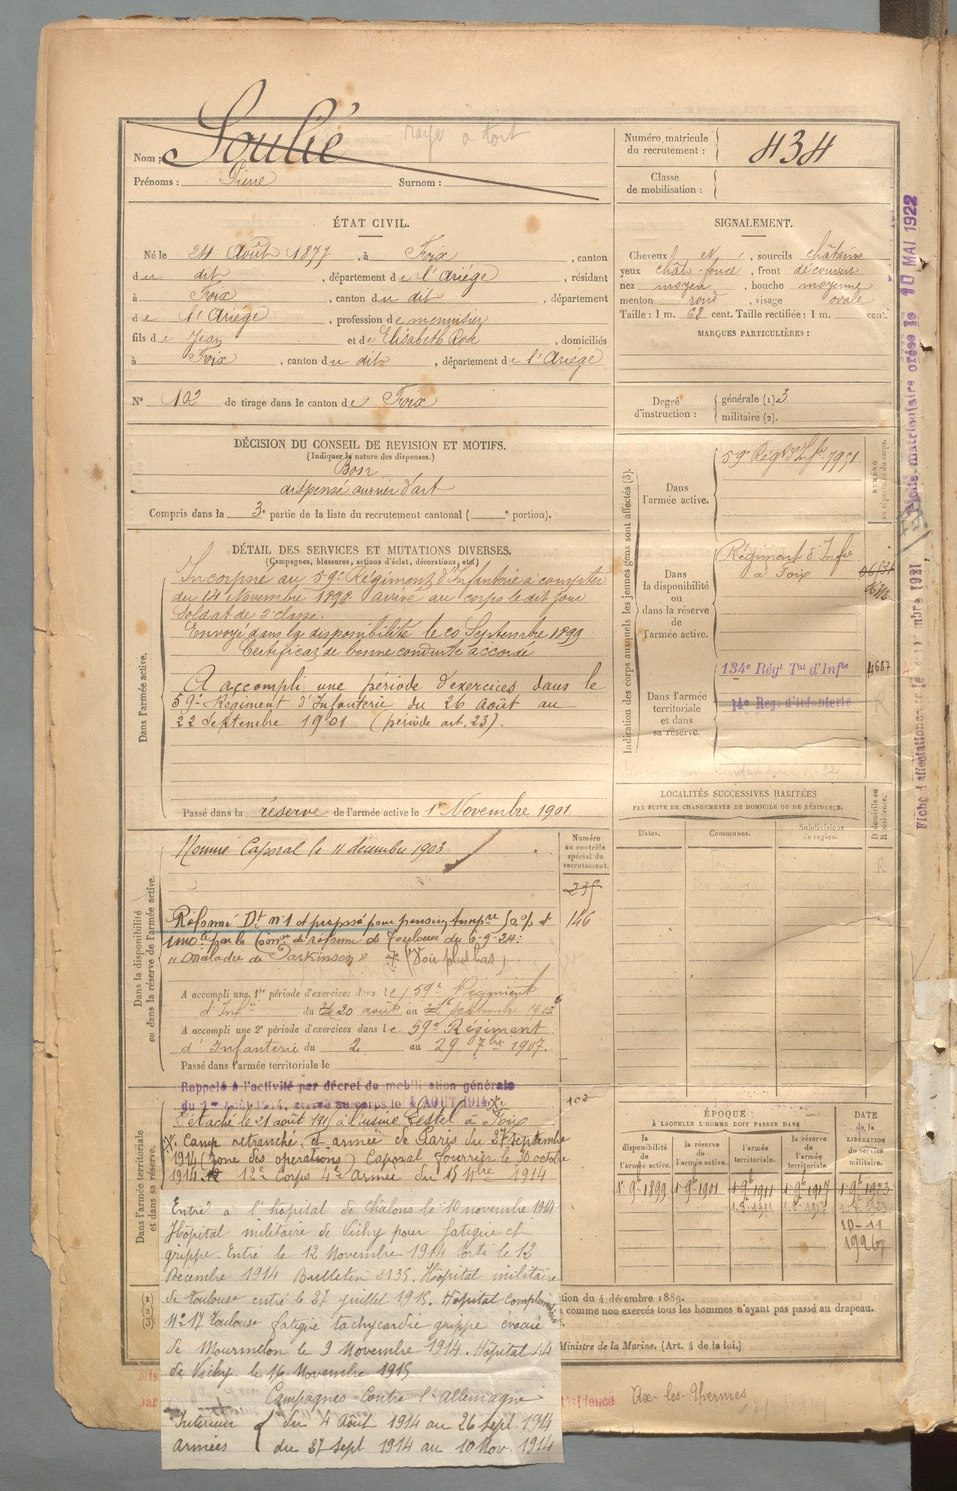 rayé à tort
Nom : Soulié
Prénoms : Pierre Surnom :
Numéro matricule du recrutement : 434
Classe de mobilisation :
ÉTAT CIVIL.
Né le 24 Août 1877, à Foix, canton
du dit, département de l'Ariège, résidant
à Foix, canton du dit, département
de l'Ariège, profession de menuisier
fils de Jean et de Elisabeth, domiciliés
à Foix, canton du dit, département de l'Ariège
N° 102 de tirage dans le canton de Foix
SIGNALEMENT.
Cheveux, sourcils châtains
yeux chât. foncé, front découvert
nez moyen, bouche moyenne
menton rond, visage ovale
Taille : 1 m. 68 cent. Taille rectifiée : 1 m. cent.
MARQUES PARTICULIÈRES :
Degré d'instruction : générale (1) 3
militaire (2).
DÉCISION DU CONSEIL DE REVISION ET MOTIFS.
(Indiquer la nature des dispenses.)
Bon
dispensé ouvrier d'art
Compris dans la 3e partie de la liste du recrutement cantonal ( e portion).
DÉTAIL DES SERVICES ET MUTATIONS DIVERSES.
(Campagnes, blessures, actions d'éclat, décorations, etc.)
Dans l'armée active.
Incorporé au 59e Régiment d'Infanterie à compter
du 14 Novembre 1898 arrivé au corps le dit jour
Soldat de 2e classe.
Envoyé dans la disponibilité le 20 Septembre 1899
Certificat de bonne conduite accordé
A accompli une période d'exercices dans le
59e Régiment d'Infanterie du 26 Août au
22 Septembre 1901 (période art. 23).
Passé dans la réserve de l'armée active le 1er Novembre 1901
Indication des corps auxquels les jeunes gens sont affectés (3).
Dans l'armée active.
59e Régt d'Infie
Dans la disponibilité ou dans la réserve de l'armée active.
Régiment d'Infie
à Foix
Dans l'armée territoriale et dans sa réserve.
134e Régt Tal d'Infie 4687
14e Régt d'Infanterie
LOCALITÉS SUCCESSIVES HABITÉES
PAR SUITE DE CHANGEMENTS DE DOMICILE OU DE RÉSIDENCE.
Dates. Communes. Subdivisions de région. D domicile ou R résidence.
Dans la disponibilité ou dans la réserve de l'armée active.
Numéro au contrôle spécial du recrutement.
Nommé Caporal le 11 décembre 1903
Réformé Dt n° 1 et proposé pour pension tempre
par la Comon de réforme de Toulouse du 6-9-24:
"Maladie de Parkinson" (Voir plus bas)
146
A accompli une 1re période d'exercices dans le 59e Régiment
d'Infie du 20 août au 16 septembre
A accompli une 2e période d'exercices dans le 59e Régiment
d'Infanterie du 2 au 29 7bre 1907.
Passé dans l'armée territoriale le
Dans l'armée territoriale et dans sa réserve.
Rappelé à l'activité par décret de mobilisation générale
du 1er Août 1914, arrivé au corps le 4 AOUT 1914 X.
102
Détaché le 21 août à l'usine à Foix
X. Camp retranché et armée de Paris du 27 septembre
1914 (zone des opérations) Caporal Fourrier le 30 octobre
1914 12e Corps 4e Armée du 15 Nbre 1914
Entré à l'hôpital de Châlons le 10 novembre 1914
Hôpital militaire de Vichy pour fatigue et
grippe. Entré le 12 Novembre 1914 sorti le 12
Décembre 1914 Bulletin 3135. Hôpital militaire
de Toulouse entré le 27 juillet 1915. Hôpital Complémentaire
N° 17 Toulouse fatigue tachycardie grippe évacué
de Mourmelon le 9 Novembre 1914. Hôpital 44
de Vichy le 16 Novembre 1915
Campagnes Contre l'Allemagne
Intérieur du 4 Août 1914 au 26 Sept. 1914
Armées du 27 Sept 1914 au 10 Nov. 1914
ÉPOQUE
À LAQUELLE L'HOMME DOIT PASSER DANS
la disponibilité de l'armée active. la réserve de l'armée active. l'armée territoriale. la réserve de l'armée territoriale.
DATE de la LIBÉRATION du service militaire.
1er 9bre 1899 1er 9bre 1901 1er 9bre 1911 1er 9bre 1917 1er 9bre 1923
10-11
tion du 4 décembre 1889.
comme non exercés tous les hommes n'ayant pas passé au drapeau.
Ministre de la Marine. (Art. 4 de la loi.)
résidence Ax-les-Thermes
Fiche matriculaire créée le 10 MAI 1922